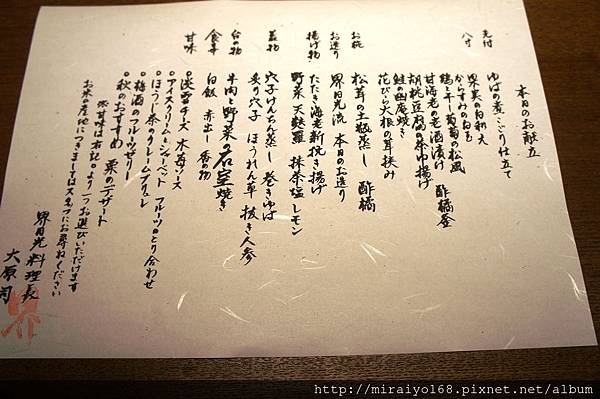 本日のお献立
先付
ゆばの煮こごり仕立て
八寸
果実の白和え
からすみの白玉
鶏と干し葡萄の松風
酢橘釜
甘海老の老酒漬け
胡桃豆腐の茶巾揚げ
鮭の幽庵焼き
花びら大根の耳挟み
お椀
松茸の土瓶蒸し 酢橘
お造り
界日光流 本日のお造り
揚げ物
たたき海老新挽き揚げ
野菜 天麩羅 抹茶塩 レモン
蓋物
穴子けんちん蒸し 巻きゆば
炙り穴子 ほうれん草 抜き人参
台の物
牛肉と野菜の石室焼き
食事
白飯 赤出し 香の物
甘味
○淡雪チーズ 木苺ソース
○アイスクリーム・シャーベット フルーツのとり合わせ
○ほうじ茶のクレームブリュレ
○梅酒のフルーツゼリー
○秋のおすすめ 栗のデザート
※甘味は右記より一つお選びいただけます
お米の産地につきましてはスタッフにお尋ねください
界日光 料理長
大原 司
界
http://miraiyo168.pixnet.net/album